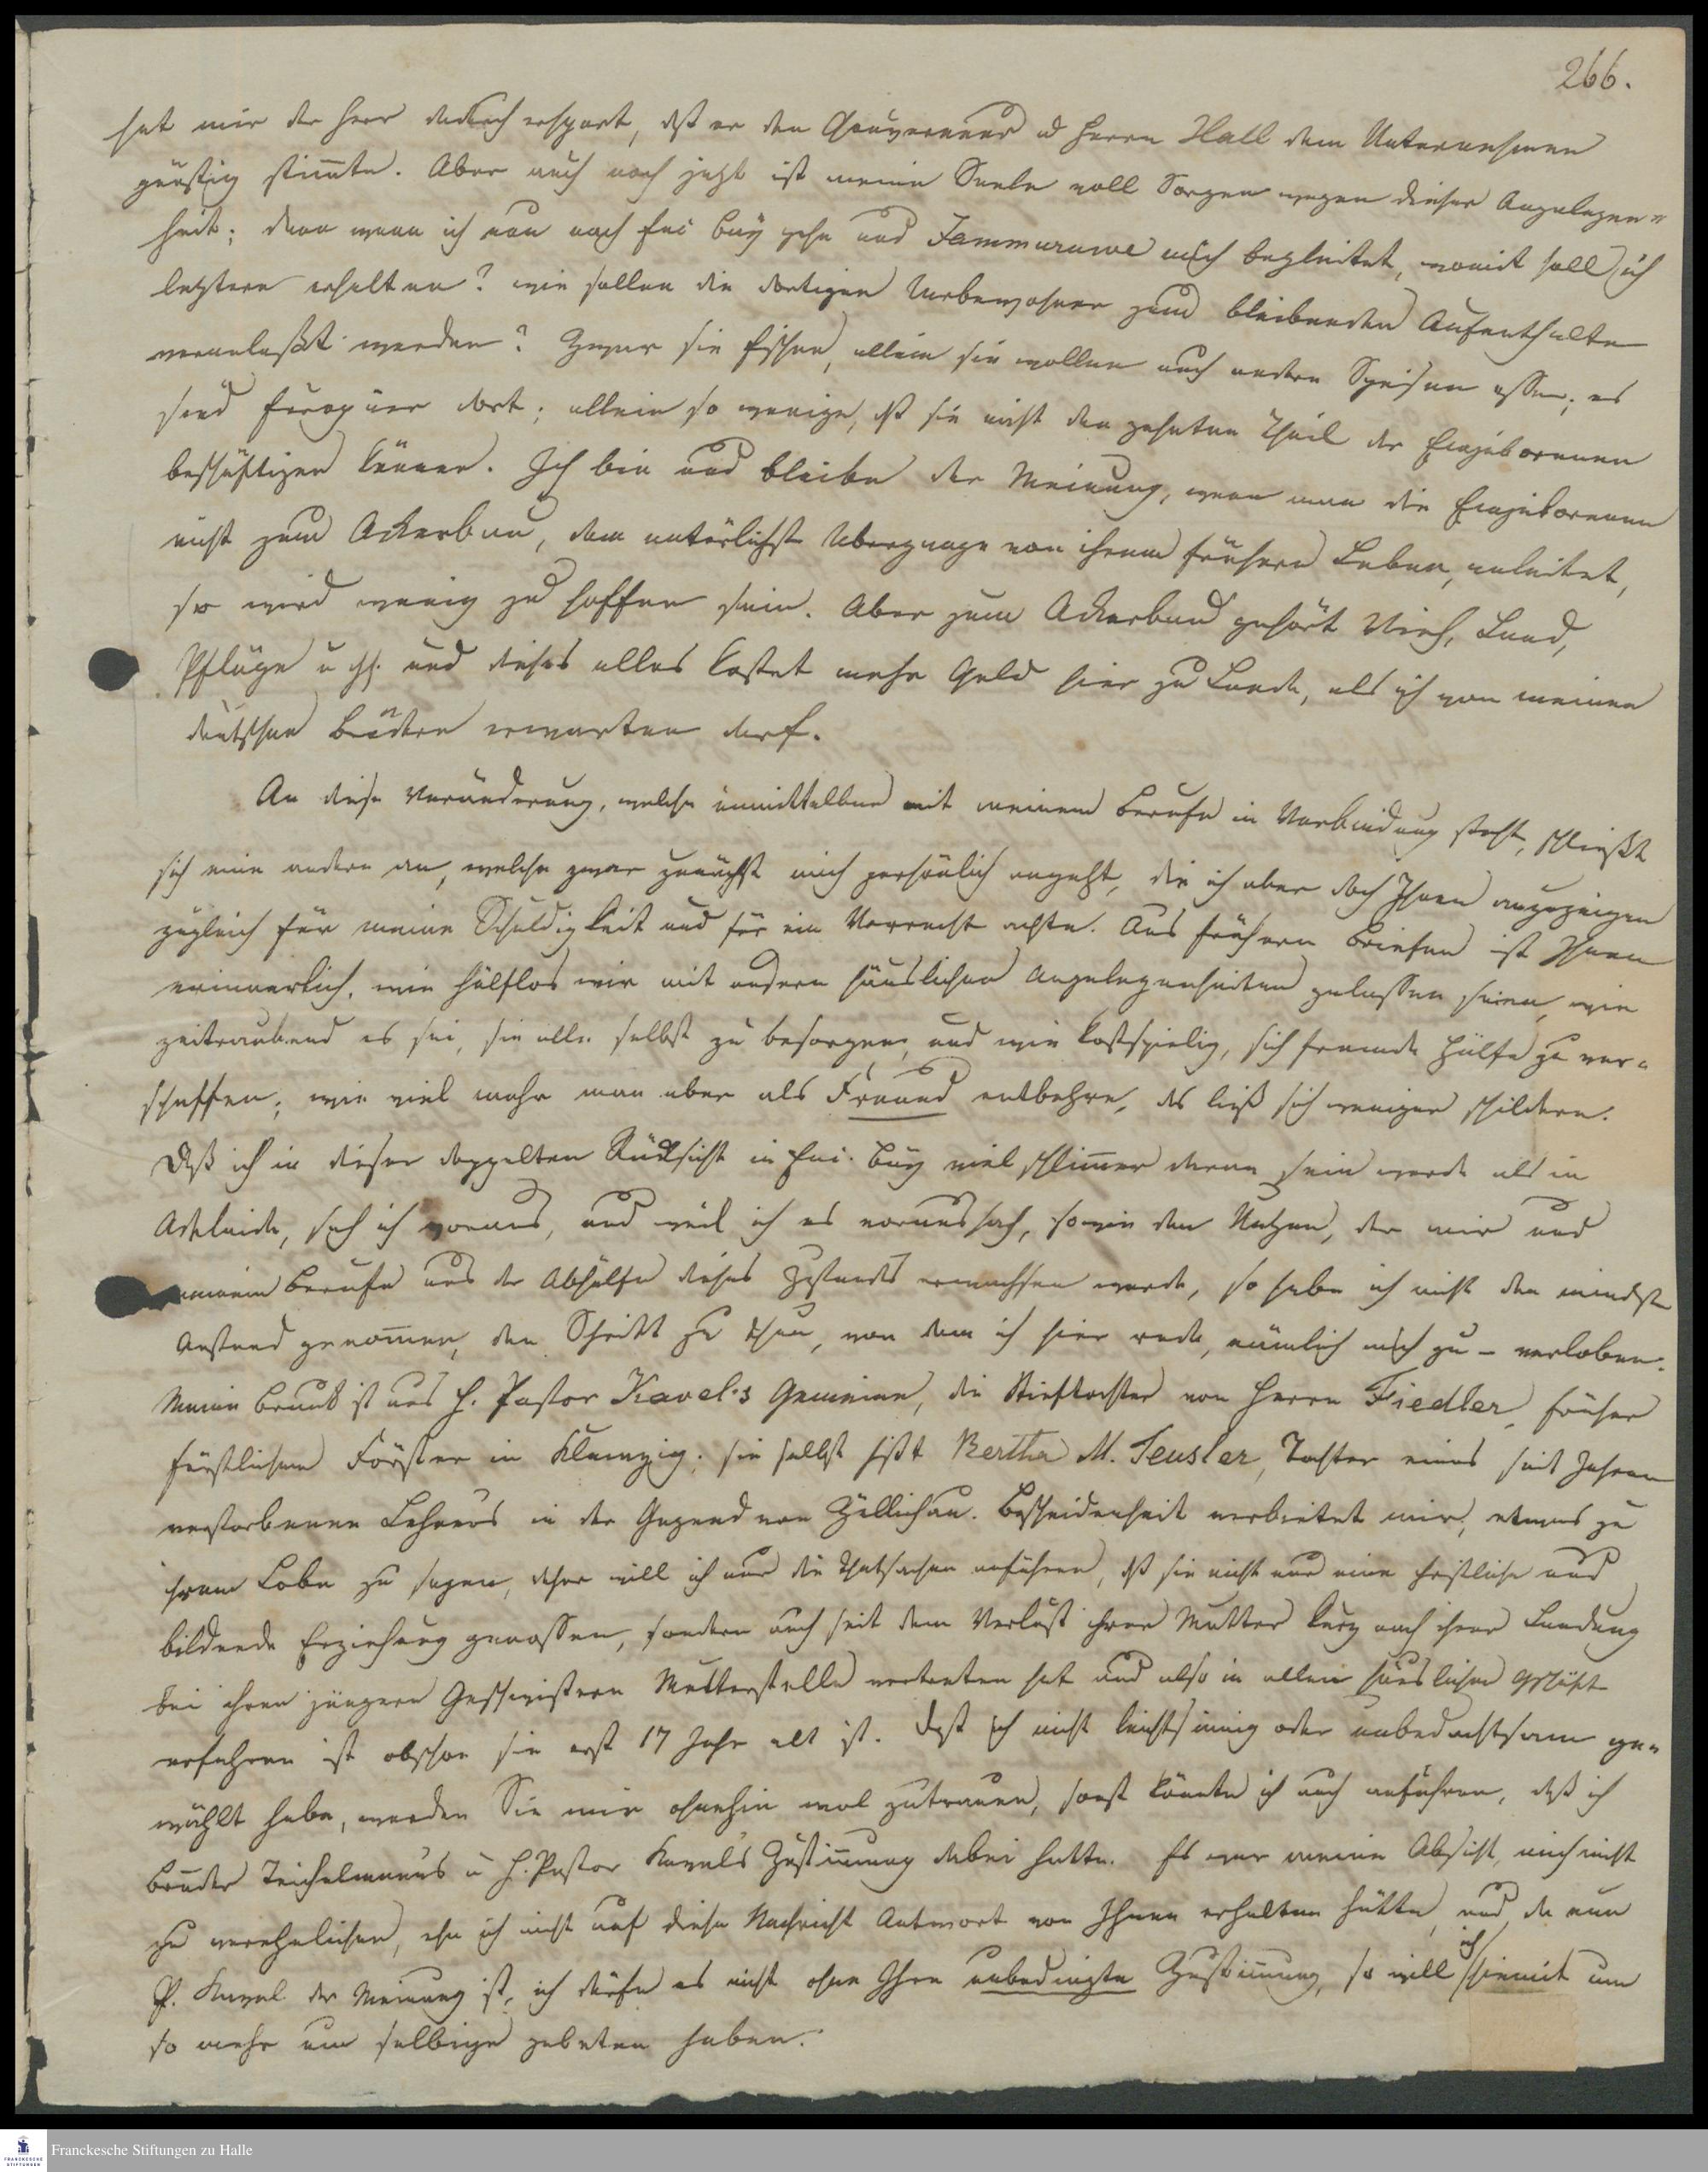 266.
hat mir der Herr dadurch erspart, daß er den Gouverneur u Herrn Hall dem Unternehmen
günstig stim̅te. Aber auch noch jetzt ist meine Seele voll Sorgen wegen dieser Angelegen=
heit; denn wenn ich nun nach Enc. Bay gehe und Tammuruwe mich begleitet, womit soll ich
letztern erhalten? wie sollen die dortigen Urbewohner zum bleibenden Aufenthalte
veranlaßt werden? Zwar sie fischen, allein sie wollen auch andere Speisen essen; es
sind Europäer dort; allein so wenige, daß sie nicht den zehnten Theil der Eingebornen
beschäftigen können. Ich bin und bleibe der Meinung, wenn man die Eingebornen
nicht zum Ackerbau, dem natürlichst Ubergange von ihrem frühern Leben, anleitet,
so wird wenig zu hoffen sein. Aber zum Ackerbau gehört Vieh, Land,
Pflüge u und dieses alles kostet mehr Geld hier zu Lande, als ich von meinen
deutschen Brüdern erwarten darf.
An diese Veränderung, welche unmittelbar mit meinem Berufe in Verbindung steht, schließt
sich eine andere an, welche zwar zunächst mich persönlich angeht, die ich aber doch Ihnen anzuzeigen
zugleich für meine Schuldigkeit und für ein Vorrecht achte. Aus frühern Briefen ist Ihnen
erinnerlich, wie hülflos wir mit unsern häuslichen Angelegenheiten gelassen seien, wie
zeitraubend es sei, sie alle selbst zu besorgen, und wie kostspielig, sich fremde Hülfe zu ver=
schaffen; wie viel mehr man aber als Freund entbehre, das ließ sich weniger schildern.
Daß ich in dieser doppelten Rücksicht in Enc. Bay viel schlim̅er daran sein werde als in
Adelaide, sah ich voraus, und weil ich es voraussah, sowie den Nutzen, der mir und
meinem Berufe aus der Abhülfe dieses Zustandes erwachsen werde, so habe ich nicht den mindste
Anstand genom̅en, den Schritt zu thun, von dem ich hier rede, nämlich mich zu – verloben.
Meine Braut ist aus H. Pastor Kavel's Gemeine, die Stieftochter von Herrn Fiedler, früher
fürstlichem Förster in Klemzig; sie selbst heißt Bertha M. Teusler, Tochter eines seit Jahren
verstorbenen Lehrers in der Gegend von Züllichau. Bescheidenheit verbietet mir, etwas zu
ihrem Lobe zu sagen, daher will ich nur die Thatsachen anführen, daß sie nicht nur eine christliche und
bildende Erziehung genossen, sondern auch seit dem Verlust ihrer Mutter kurz nach ihrer Landung
bei ihren jüngern Geschwistern Mutterstelle vertreten hat und also in allen häuslichen Geschäft
erfahren ist obschon sie erst 17 Jahr alt ist. Daß ich nicht leichtsinnig oder unbedachtsam ge=
wählt habe, werden Sie mir ohnehin wol zutrauen, sonst könnte ich auch anführen, daß ich
Bruder Teichelmann's u H. Pastor Kavel's Zustim̅ung dabei hatte. Es war meine Absicht, mich nicht
zu verehelichen, ehe ich nicht auf diese Nachricht Antwort von Ihnen erhalten hätte, und da nun
P. Kavel der Meinung ist, ich dürfe es nicht ohne Ihre unbedingte Zustim̅ung, so will ich hiemit um
so mehr um selbige gebeten haben.
Franckesche Stiftungen zu Halle